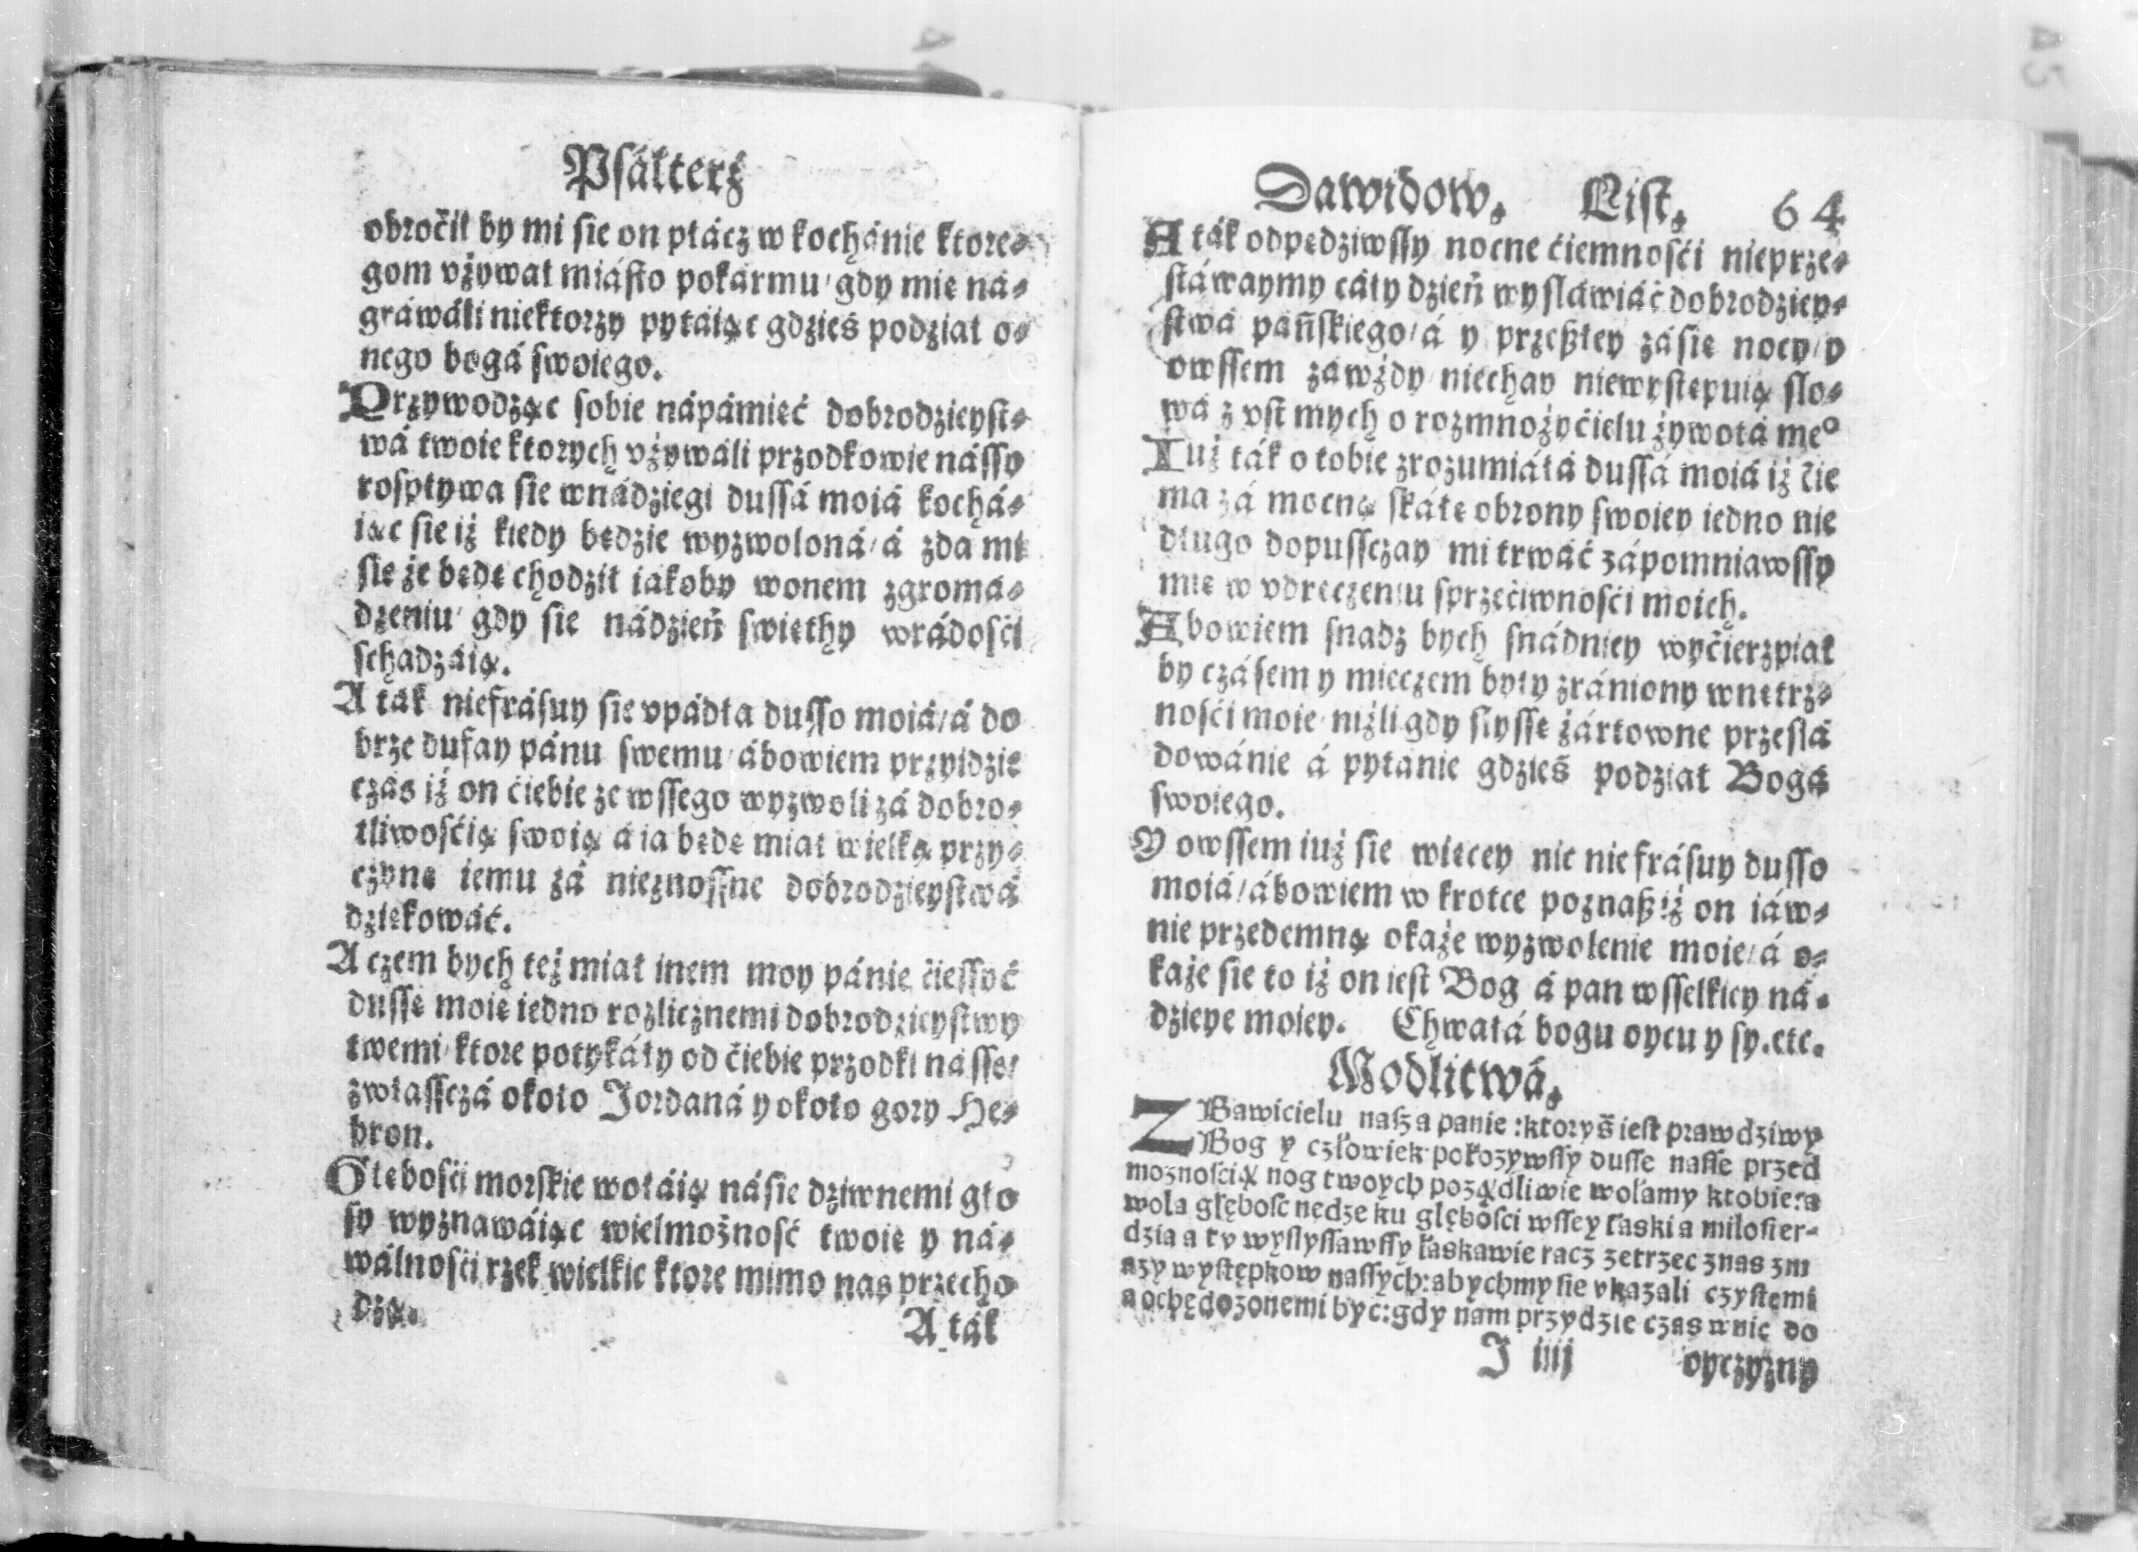 Psálterż
obrocił by mi sie on płácz w kochánie ktore⸗
gom vżywał miásto pokármu/ gdy mie ná⸗
gráwáli niektorzy pytáiąc gdzieś podział o⸗
nego bogá swoiego.
Przywodząc sobie nápámięć dobrodzieyst⸗
wá twoie ktorych vżywáli przodkowie nássy
rospływa sie wnádziegi dussá moiá kochá⸗
iąc sie iż kiedy będzie wyzwoloná/ á zda mi
się że będę chodził iakoby wonem zgromá⸗
dzeniu/ gdy sie nádzień swięthy wrádości
schadzáią.
A ták niefrásuy się vpádła dusso moiá/ á do
brze dufay pánu swemu/ ábowiem przyidzie
czás iż on ciebie ze wssego wyzwoli zá dobro⸗
tliwością swoią á ia będę miał wielką przy⸗
czynę iemu zá nieznossne dobrodzieystwá
dziękowáć.
A czem bych też miał inem moy pánie ciessyć
dussę moię iedno rozlicznemi dobrodzieystwy
twemi/ ktore potykáły od ciebie przodki násse/
zwłassczá około Jordaná y około gory He⸗
bron.
Głębości morskie wołáią násie dziwnemi gło
sy wyznawáiąc wielmożność twoię y ná⸗
wálności rzek wielkie ktore mimo nas przecho
dzą.
A ták
Dawidow. List. 64
A ták odpędziwssy nocne ciemności nieprze⸗
stáwaymy cáły dzień wysláwiáć dobrodziey⸗
stwá páńskiego/ á y przeßłey zásię nocy/ y
owssem záwżdy niechay niewystępuią sło⸗
wá z vst mych o rozmnożycielu żywotá me°
Iuż ták o tobie zrozumiáłá dussá moiá iż cie
ma zá mocną skáłę obrony swoiey iedno nie
długo dopussczay mi trwáć zápomniawssy
mie w vdręczeniu sprzeciwności moich.
Abowiem snadz bych snádniey wycierzpiał
by czásem y mieczem były zrániony wnętrz⸗
ności moie/ niżli gdy słyssę żártowne przeslá
dowánie á pytánie gdzieś podział Bogá
swoiego.
Y owssem iuż sie więcey nic nie frásuy dusso
moiá/ ábowiem w krotce poznaß iż on iáw⸗
nie przedemną okaże wyzwolenie moie/ á o⸗
każe sie to iż on iest Bog á pan wsselkiey ná⸗
dzieye moiey. Chwałá bogu oycu y sy. etc.
Modlitwá.
ZBawicielu naß a panie: ktoryś iest prawdziwy
Bog y człowiek pokozywssy dusse nasse przed
moznością nog twoych pożądliwie wołamy ktobie: a
wola głębosc nędze ku głębości wssey łaski a milosier-
dzia a ty wysłyssawssy łaskawie racz zetrzec znas zm
azy występkow nassych: abychmy sie vkazali czystemi
a ochędozonemi byc: gdy nam przydzie czas wnię do
I iiij oyczyzny